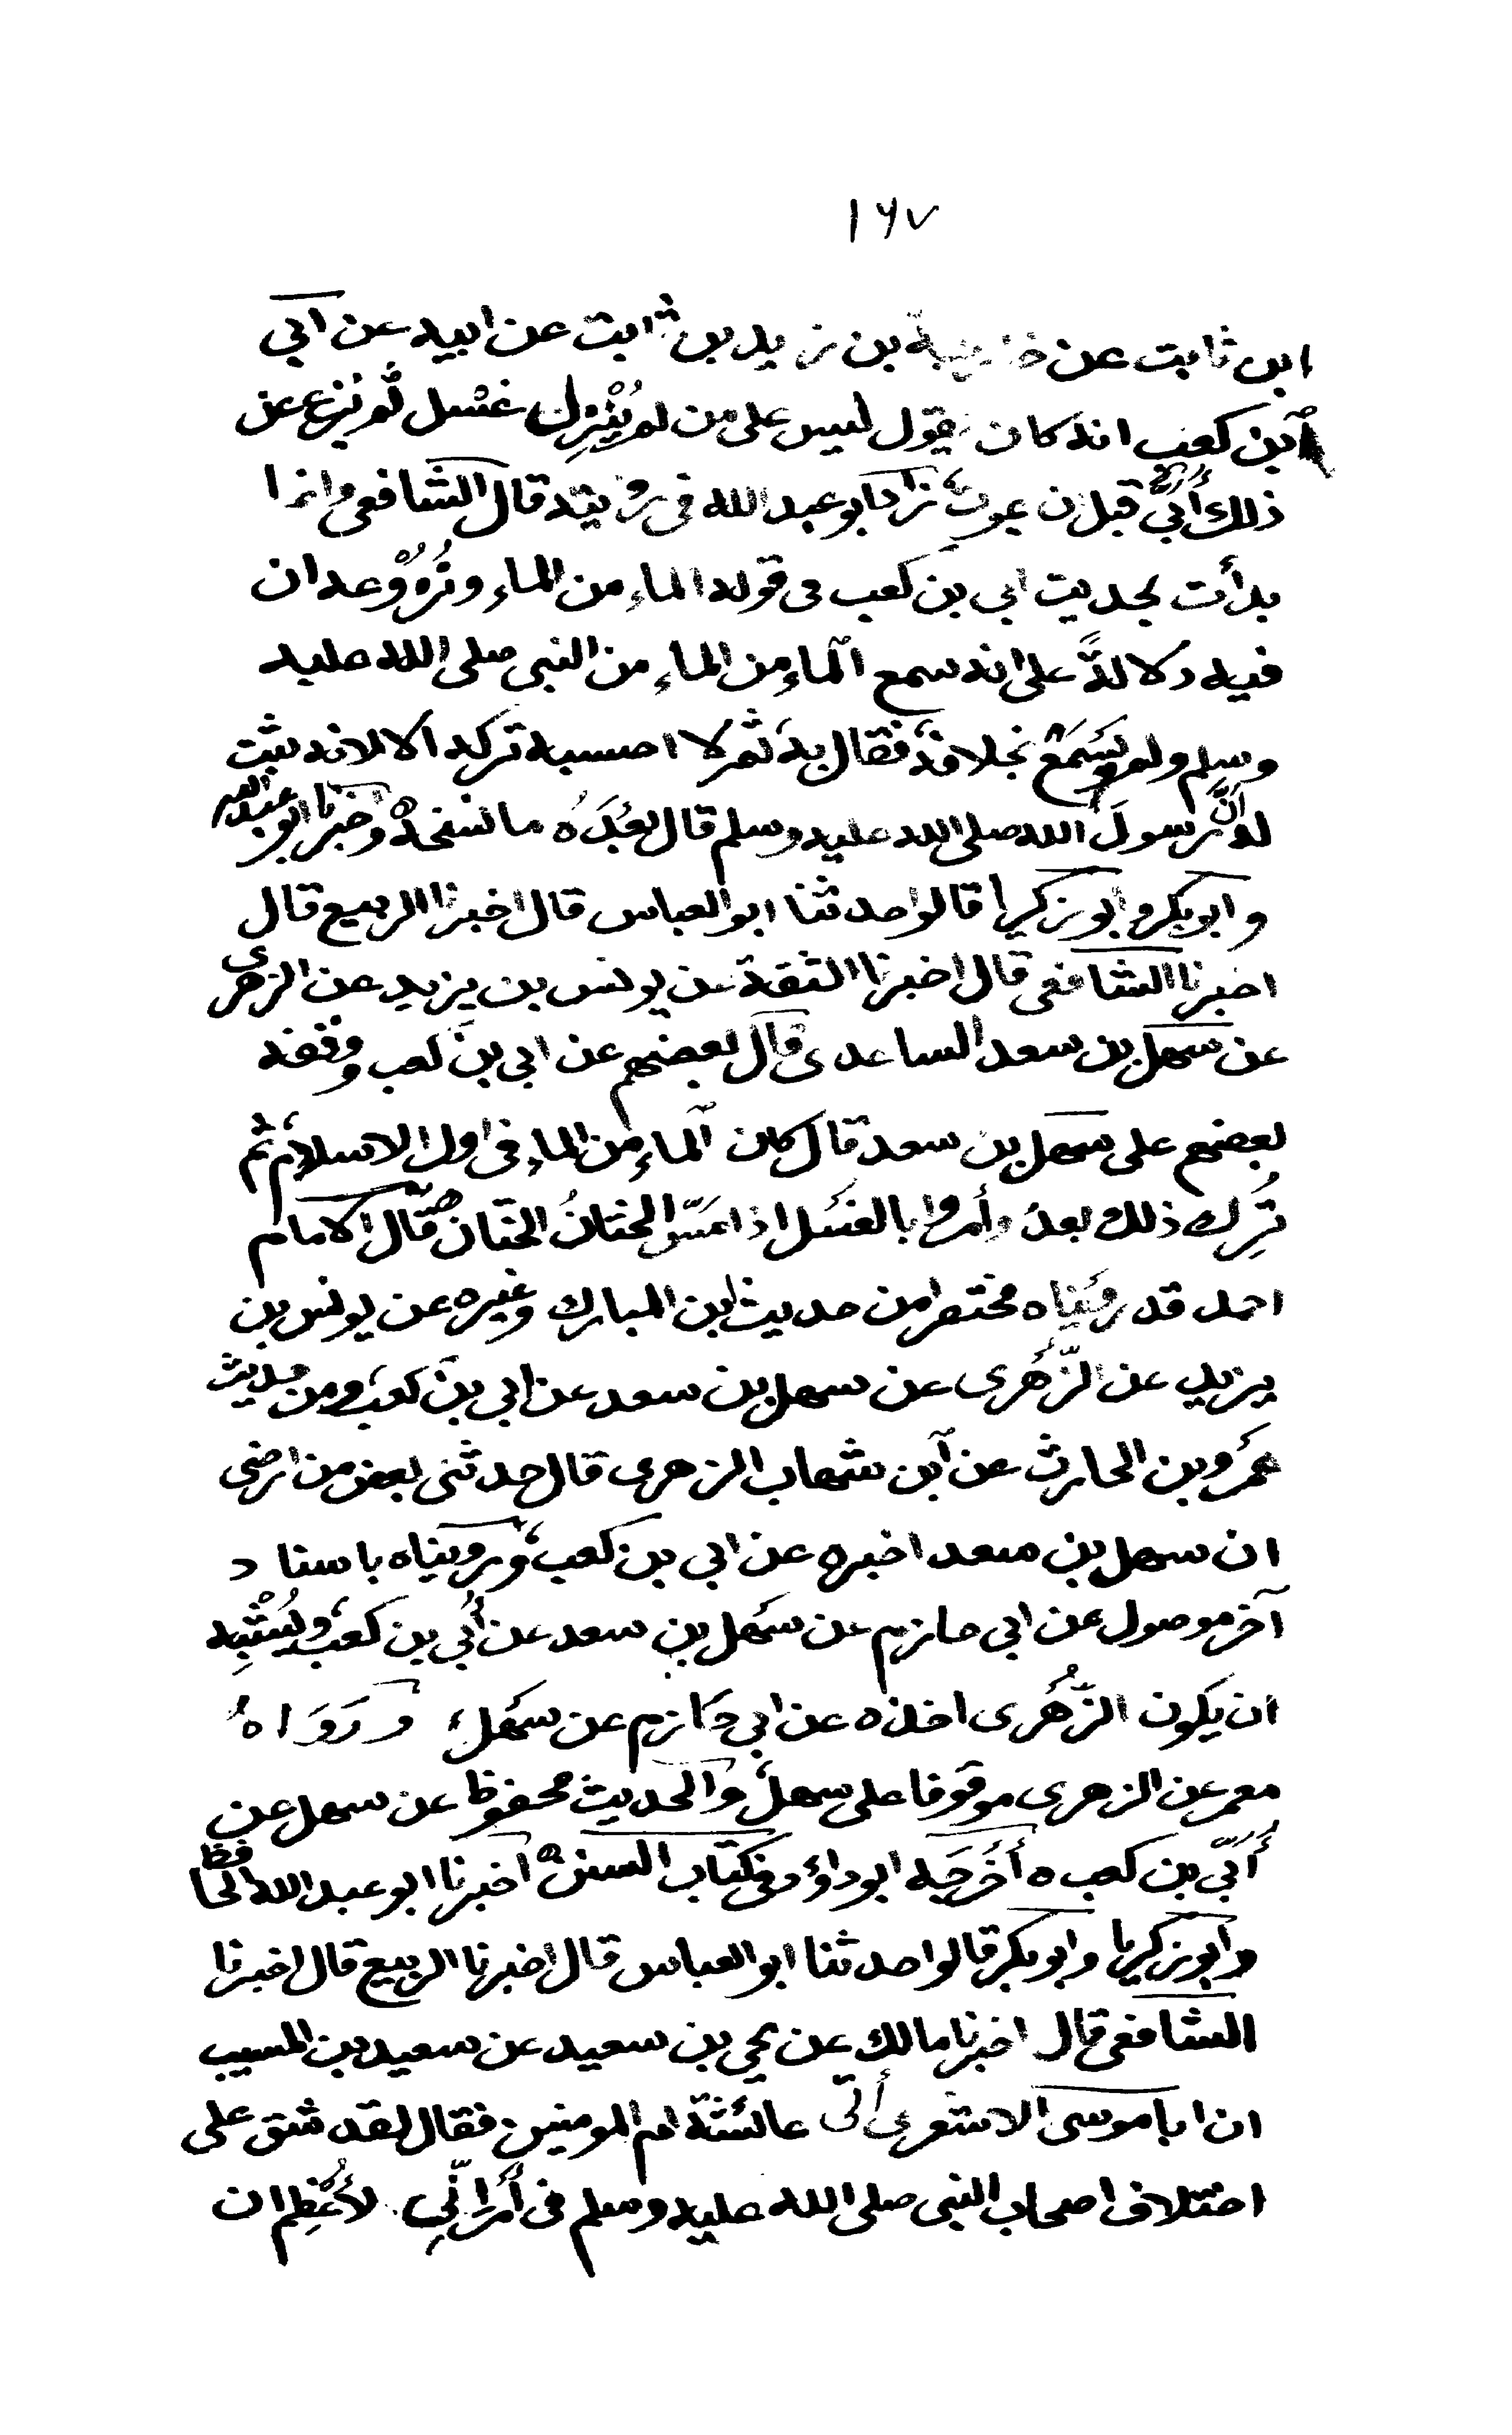 ١٦٧
ابن ثابت عن خارجة بن زيد بن ثابت عن ابيه عن ابي
ابن كعب انه كان يقول ليس على من لم يُنْزِل غسْل ثُم نزع عن
ذلك أُبيّ قبل ان يموت زاد ابو عبد الله في روايته قال الشافعي وانما
بدأت بحديث ابي بن كعب في قوله الماء من الماء ونُزُوْعه ان
فيه دلالةً على انه سمع الماء من الماء من النبي صلى الله عليه
وسلم ولم يَسْمَعْ بخلافه فقال به ثم لا احسبه تركه الا لانه يثبت
له انَّ رسولَ الله صلى الله عليه وسلم قال بَعْدَهُ ما نسخه واخبرنا ابو عبد الله
وابو بكر وابو زكريا قالوا حدثنا ابو العباس قال اخبرنا الربيع قال
اخبرنا الشافعي قال اخبرنا الثقة عن يونس بن يزيد عن الزهرى
عن سهل بن سعد الساعدى قال بعضهم عن ابي بن كعب ووقفه
بعضهم على سهل بن سعد قال كان الماء من الماء في اول الاسلام ثم
تُرِك ذلك بعدُ وأمروا بالغسْل اذا مَسّ الختانُ الختان قال الامام
احمد قد رويناه مختصرا من حديث ابن المبارك وغيره عن يونس بن
يزيد عن الزُّهْرى عن سهل بن سعد عن ابي بن كعب ومن حديث
عَمْرو بن الحارث عن ابن شهاب الزهرى قال حدثني بعض من ارضى
ان سهل بن سعد اخبره عن ابي بن كعب ورويناه باسناد
آخر موصول عن ابي حازم عن سَهْل بن سعد عن أُبي بن كعب ويُشْبِه
ان يكون الزُّهْرى اخذه عن ابي حَازم عن سَهْل ورَوَاهُ
معمر عن الزهرى موقوفا على سهل والحديث محفوظ عن سهل عن
أُبَيّ بن كعب ه أَخْرَجَه ابو داؤد في كتاب السنن ه اخبرنا ابو عبد الله الحافظ
وابو زكريا وابو بكر قالوا حدثنا ابو العباس قال اخبرنا الربيع قال اخبرنا
الشافعي قال اخبرنا مالك عن يحي بن سعيد عن سعيد بن المسيب
ان ابا موسى الاشعرى أتى عائشة ام المومنين فقال لقد شق على
اختلاف اصحاب النبي صلى الله عليه وسلم في أمر انّي لأُعْظِم ان